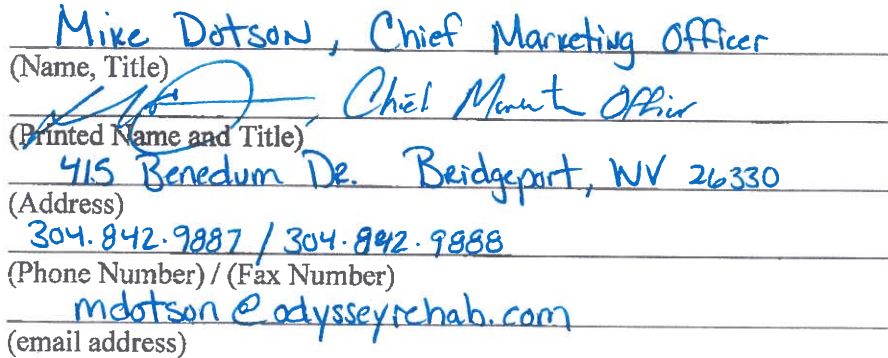 Mike Dotson, Chief Marketing Officer
(Name, Title)
, Chief Officer
(Printed Name and Title)
415 Benedum Dr. Bridgeport, WV 26330
(Address)
304.842.9887 / 304.842.9888
(Phone Number) / (Fax Number)
mdotson@odysseyrehab.com
(email address)